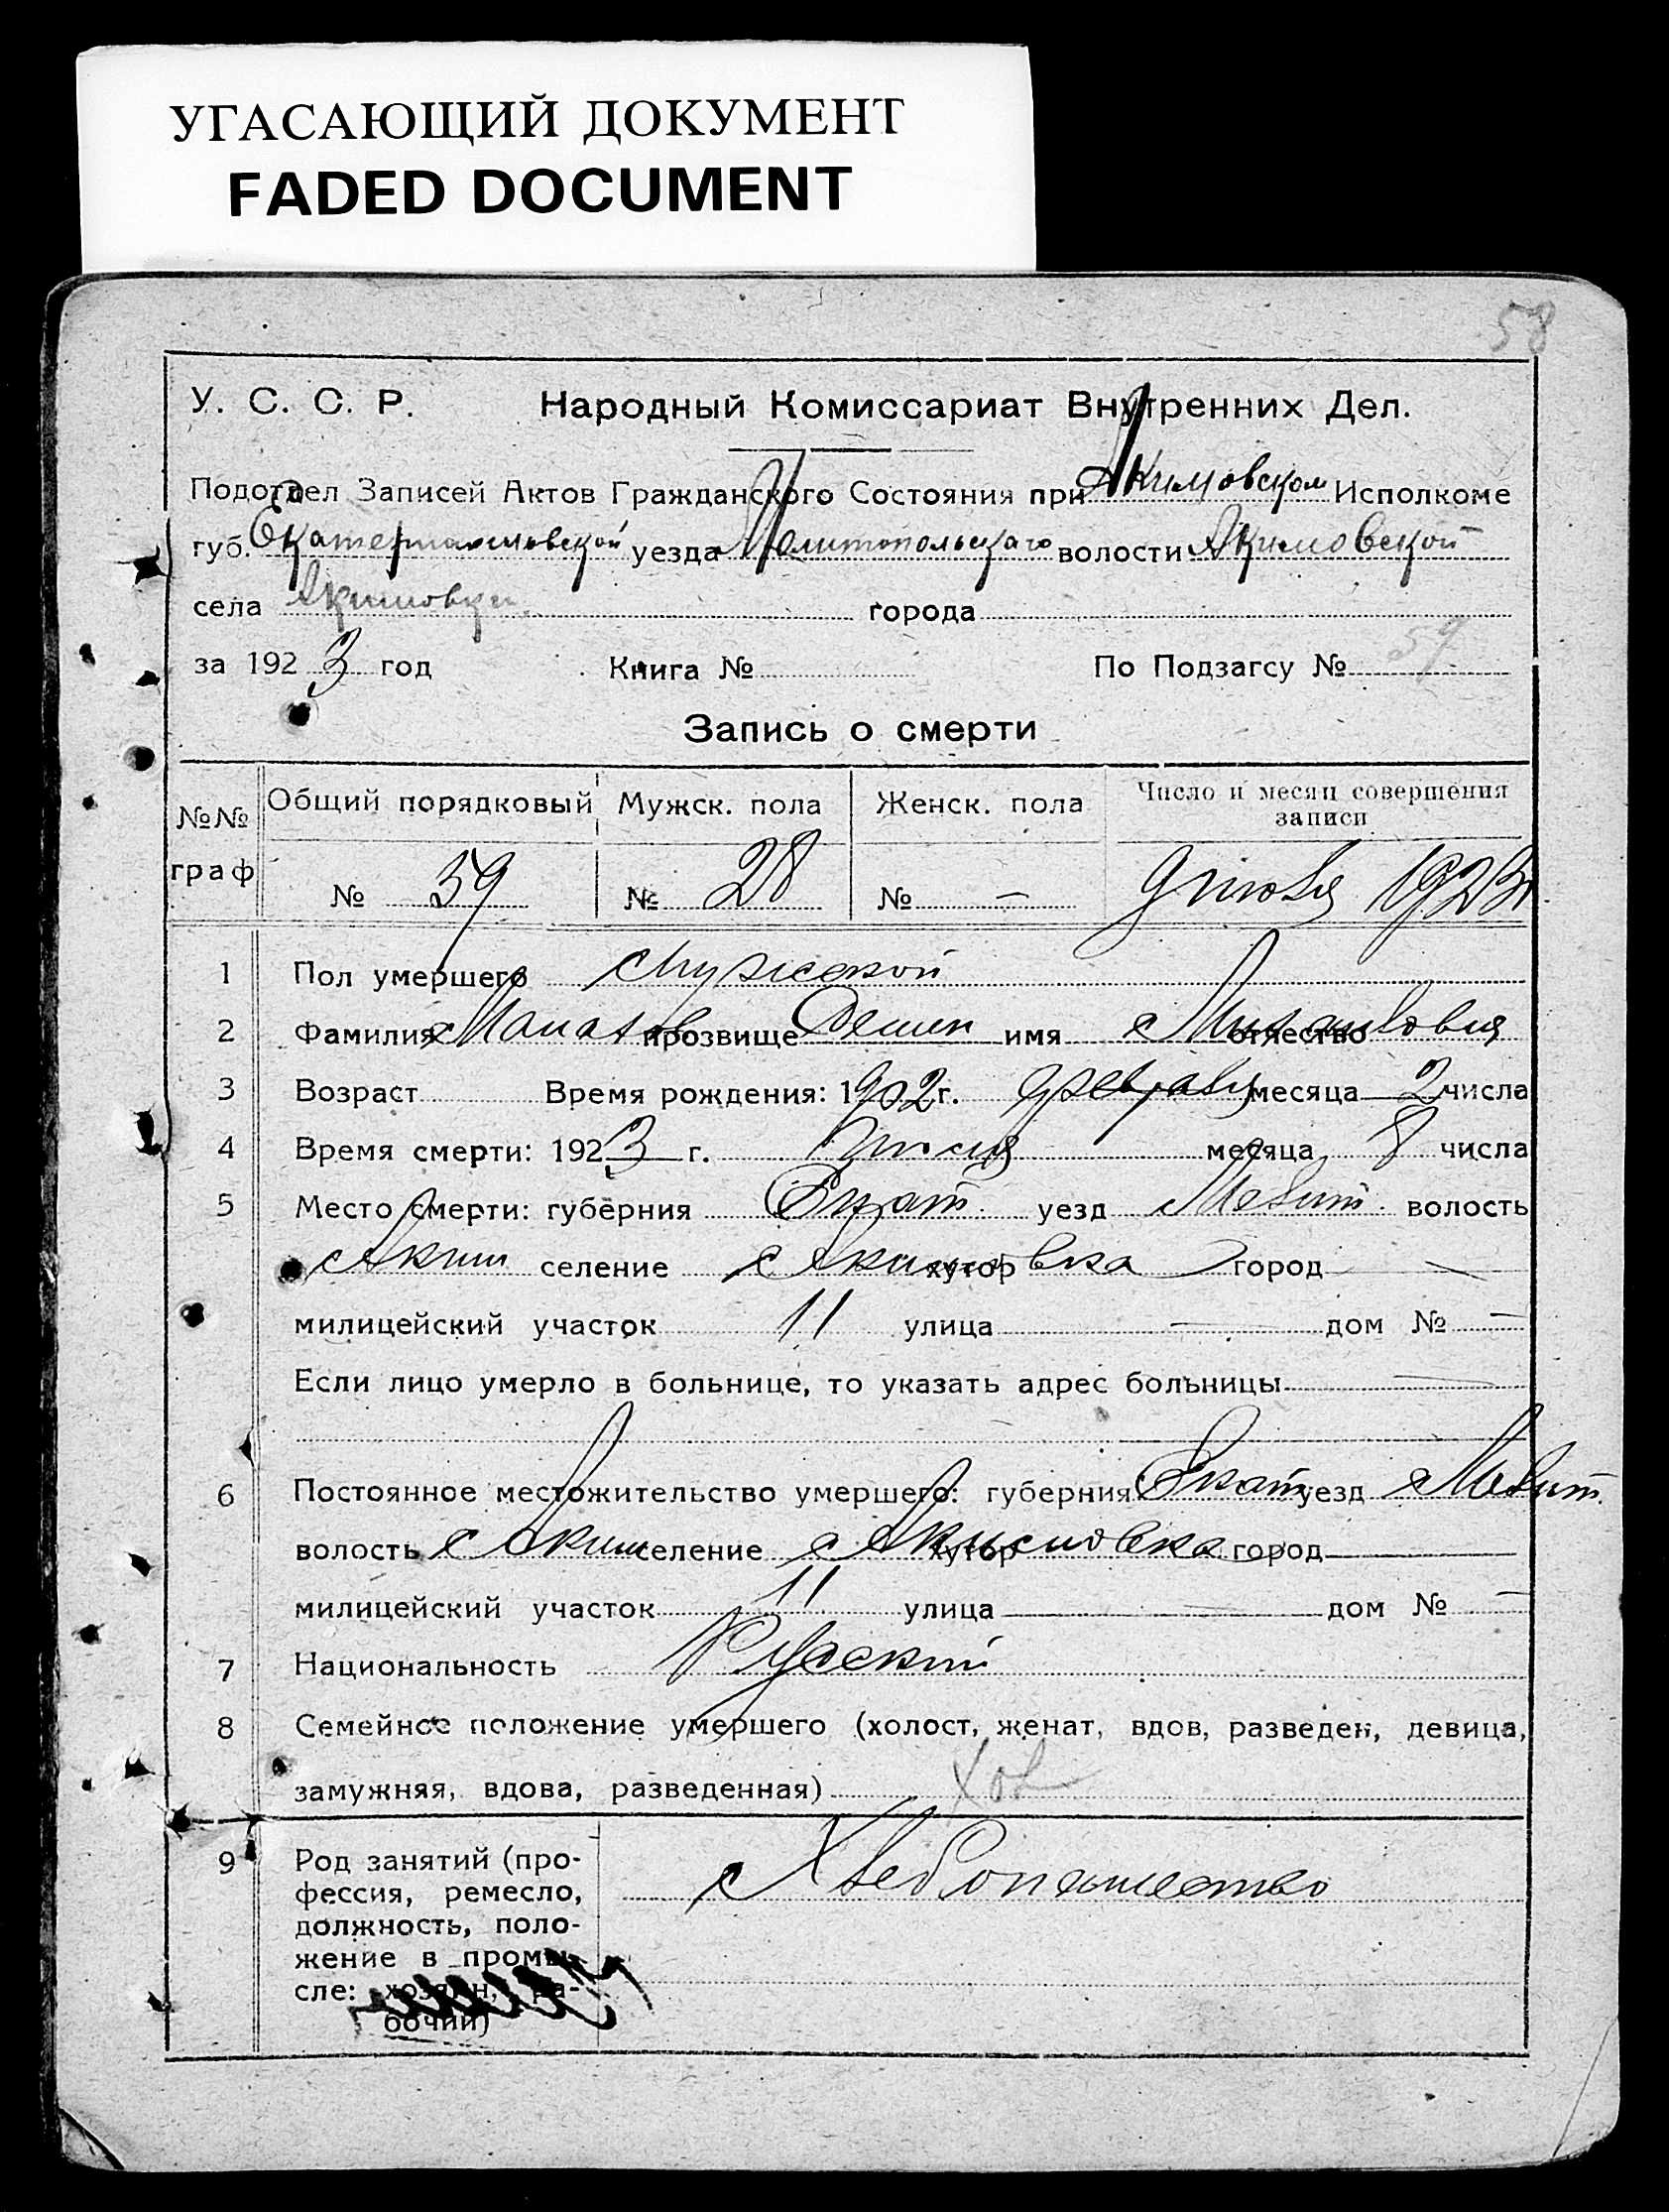 УГАСАЮЩИЙ ДОКУМЕНТ
FADED DOCUMENT
58
У. С. С. Р. Народный Комиссариат Внутренних Дел.
Подотдел Записей Актов Гражданского Состояния при Акимовском Исполкоме
губ. Екатеринославской уезда Мелитопольскаго волости Акимовской
села Акимовки города
за 1923 год Книга № По Подзагсу № 59
Запись о смерти
№№ граф Общий порядковый Мужск. пола Женск. пола Число и месяц совершения записи
№ 59 № 28 № — 9 июля 1923
1 Пол умершего Мужской
2 Фамилия прозвище имя отчество
3 Возраст Время рождения: 1902 г. февраля месяца 2 числа
4 Время смерти: 1923 г. июля месяца 8 числа
5 Место смерти: губерния Екат. уезд Мелит. волость
Аким селение Акимовка хутор город —
милицейский участок 11 улица — дом № —
Если лицо умерло в больнице, то указать адрес больницы —
6 Постоянное местожительство умершего: губерния Екат уезд Мелит.
волость Аким селение Акимовка хутор город —
милицейский участок 11 улица — дом № —
7 Национальность Русский
8 Семейное положение умершего (холост, женат, вдов, разведен, девица,
замужняя, вдова, разведенная) Хол
9 Род занятий (про- Хлебопашество
фессия, ремесло,
должность, поло-
жение в промы-
сле: хозяин, ра-
бочий)